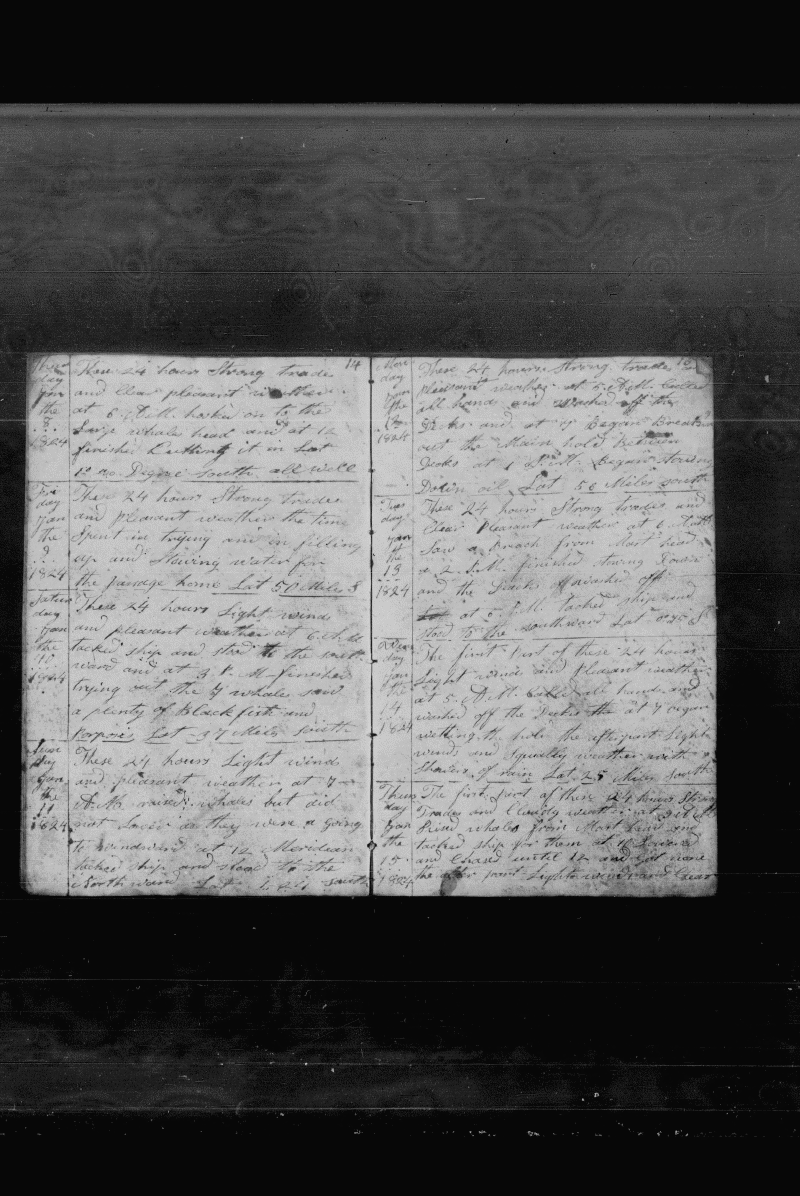 14
Thurs
day
Jan
the
8
1824
These 24 hours Strong trade
and Clear pleasant weather
at 6 A.M. hooked on to the
large whale head and at 12
finished Cutting it in Lat
Degree South all well
Fri
day
Jan
the
9
1824
These 24 hours Strong trades
and pleasant weather the time
Spent in trying and in filling
up and Stowing water for
the passage home Lat 50 Miles S
Satur
day
Jan
the
10
1824
These 24 hours Light wind
and pleasant weather at 6
tacked ship and stood to the south
ward and at 3 P.M. finished
trying out the 7 whale saw
a plenty of Black fish and
porpois Lat 37 Miles South
day
Jan
the
11
1824
These 24 hours Light wind
and pleasant weather at 7
A.M. raised whales but did
not Lower as they were a going
to windward at 12 Meridian
tacked ship and stood to the
Northward Lat South
15
Mon
day
Jan
the
1824
These 24 hours Strong trade
pleasant weather at 5 A.M. Called
all hands and washed off the
Decks and at 7 Began Breaking
out the Main hold Between
Decks at 1 P.M. Began Stowing
Down oil Lat 56 Miles South
Tues
day
Jan
the
13
1824
These 24 hours Strong Trades and
Clear Pleasant weather at 6 A.M.
Saw a from Mast head
at 2 P.M. finished stowing Down
and the Decks washed off
at 5 P.M. tacked ship and
stood to the southward Lat S
day
Jan
the
14
1824
The first part of these 24 hours
Light winds and Pleasant weather
at 5 A.M. Called all hands and
washed off the Decks at 7 began
wetting the hold the after part Light
wind and Squally weather with
Showers of rain Lat 25 Miles South
Thurs
day
Jan
the
15
1824
The first part of these 24 hours Strong
Trades and Cloudy weather at
Rised whales from Mast head and
tacked ship for them at 7 Lowered
and Chased until 12 and got none
the after part Light wind and Clear